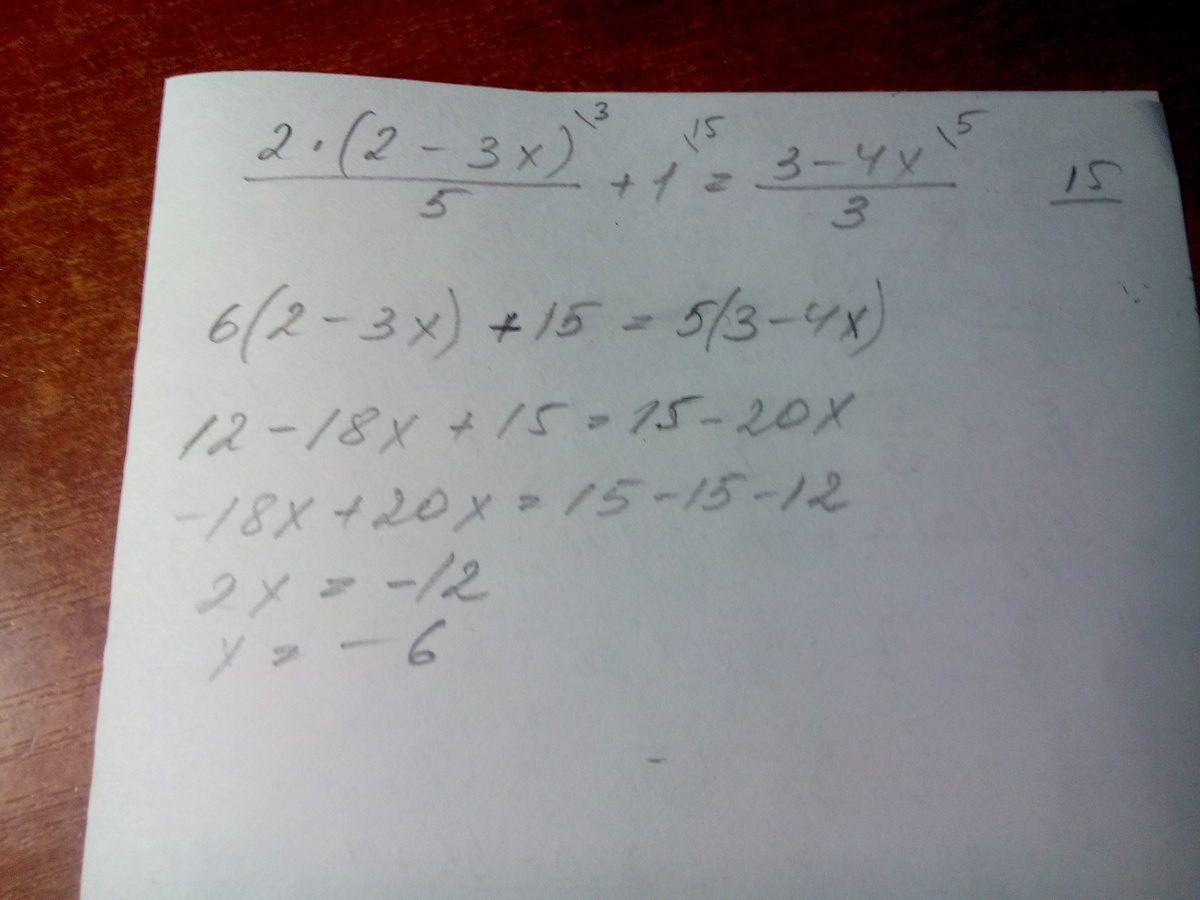 2·(2-3x)\3 / 5 + 1\15 = 3-4x\5 / 3    15
6(2-3x)+15=5(3-4x)
12-18x+15=15-20x
-18x+20x=15-15-12
2x=-12
x=-6